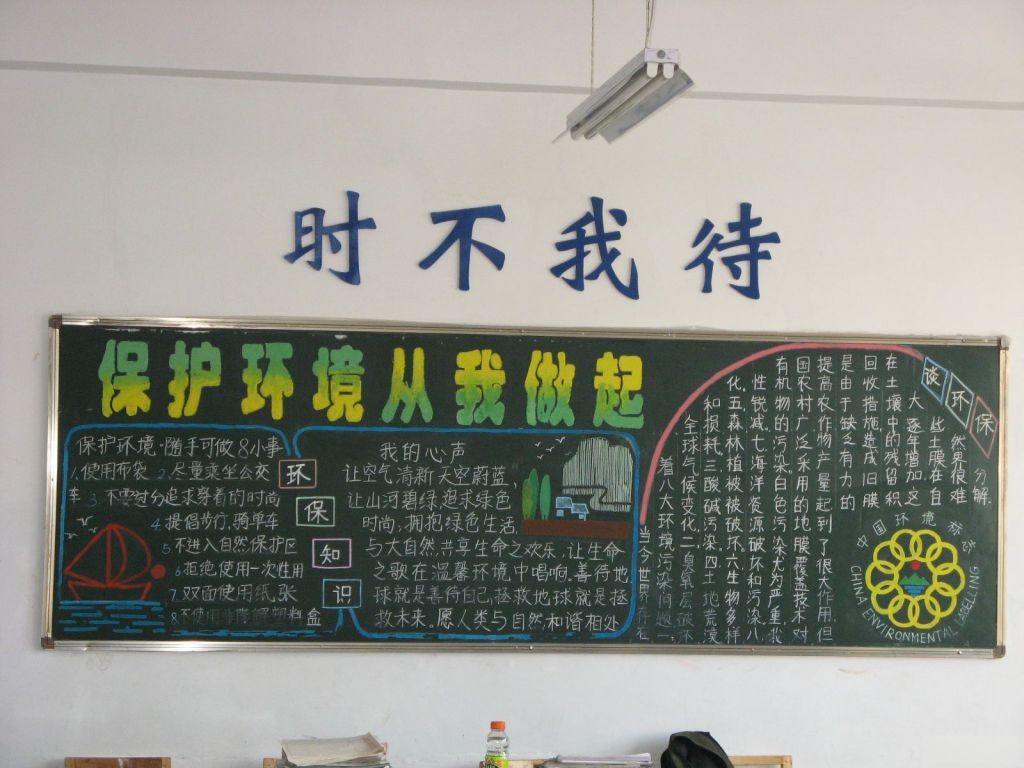 时不我待
保护环境从我做起
保护环境·随手可做8小事
1.使用布袋 2.尽量乘坐公交
车 3.不需过分追求穿着的时尚
4 提倡步行,骑单车
5 不进入自然保护区
6 拒绝使用一次性用
7.双面使用纸张
8 不使用非降解塑料盒
环
保
知
识
我的心声
让空气清新 天空蔚蓝,
让山河碧绿,追求绿色
时尚,拥抱绿色生活,
与大自然,共享生命之欢乐,让生命
之歌在温馨环境中唱响.善待地
球就是善待自己,拯救地球就是拯
救未来.愿人类与自然和谐相处
谈环保
当今世界存在
着八大环境污染问题一,
全球气候变化,二臭氧层破坏
和损耗,三酸碱污染.四土地荒漠
化,五森林植被被破坏.六生物多样
性锐减.七海洋资源破坏和污染.八
有机物的污染.白色污染尤为严重.我
国农村广泛采用的地膜覆盖技术对
提高农作物产量起到了很大作用.但
是由于缺乏有力的
回收措施.造成旧膜
在土壤中的残留积
大.逐年增加.这
些土膜在自
然界很难
分解.
中国环境标志
CHINA ENVIRONMENTAL LABELLING